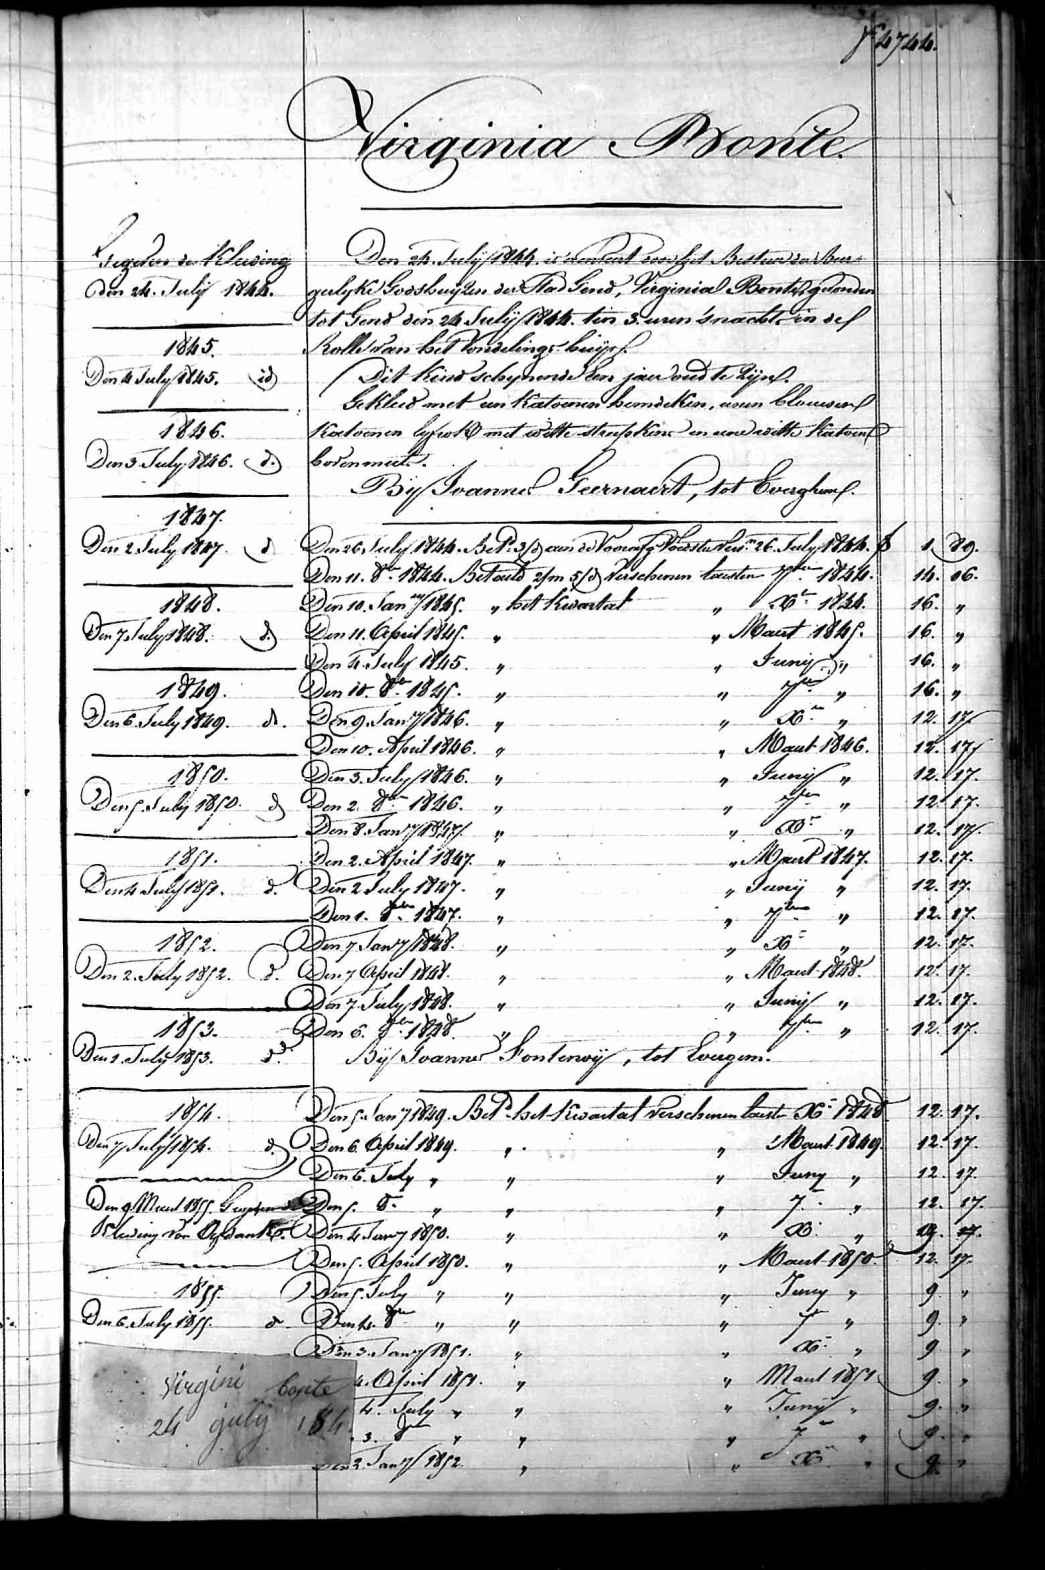 f 4744.
Virginia Bonte.
Gegeven de Kleeding
den 24. July 1844.
1845.
Den 4 July 1845. id
1846.
Den 3 July 1846. d.
1847.
Den 2 July 1847. d
1848.
Den 7 July 1848. d.
1849.
Den 6 July 1849. d.
1850.
Den 5 July 1850. d
1851.
Den 4 July 1851. d.
1852.
Den 2. July 1852. d.
1853.
Den 1. July 1853. d.
1854.
Den 7 July 1854. d.
Den 9 Maert 1855.
Kleeding van
1855.
Den 6. July 1855. d.
Virgini bonte
24 july 184
Den 24. July 1844. is door het Bestuur der Bur-
gerlyke Godshuyzen der Stad Gend, Virginia Bonte, gevonden
tot Gend den 24 July 1844. ten 3. uren 'snachts in de
Rolle van het Vondelings-huys.
Dit Kind schynende een jaer oud te zyn.
Gekleed met een Katoenen hemdeken, eenen blauwen
Katoenen lyfrok met witte streepkens en eene witte katoene
bovenmuts.
By Joannes Geernaert, tot Everghem.
Den 26 July 1844. Bet. 26. July 1844. f 1. 89.
Den 11. 8ber 1844. Betaeld 2/m 5/d Verschenen laesten 7ber 1844. 14. 06.
Den 10. Jany 1845. " het Kwartal " Xber 1844. 16. "
Den 11. April 1845. " " Maert 1845. 16. "
Den 4. July 1845. " " Juny " 16. "
Den 10. 8ber 1845. " " 7ber " 16. "
Den 9. Jany 1846. " " Xber " 12. 17.
Den 10. April 1846. " " Maert 1846. 12. 17.
Den 3. July 1846. " " Juny " 12. 17.
Den 2. 8ber 1846. " " 7ber " 12. 17.
Den 8. Jany 1847. " " Xber " 12. 17.
Den 2. April 1847. " " Maert 1847. 12. 17.
Den 2 July 1847. " " Juny " 12. 17.
Den 1. 8ber 1847. " " 7ber " 12. 17.
Den 7 Jany 1848. " " Xber " 12. 17.
Den 7 April 1848. " " Maert 1848. 12. 17.
Den 7 July 1848. " " Juny " 12. 17.
Den 6. 8ber 1848. " " 7ber " 12. 17.
By Joannes Fontenoij, tot Evergem.
Den 5. Jany 1849. Betd het Kwartal Verschenen laeste Xber 1848 12. 17.
Den 6. April 1849. " " Maert 1849. 12. 17.
Den 6. July " " " Juny " 12. 17.
Den 5. 8ber " " " 7ber " 12. 17.
Den 4 Jany 1850. " " Xber "
Den 5. April 1850. " " Maert 1850. 12. 17.
Den 5. July " " " Juny " 9. "
Den 4. 8ber " " " 7ber " 9. "
Den 3. Jany 1851. " " Xber " 9. "
4. April 1851. " " Maert 1851 9. "
4. July " " " Juny " 9. "
3. 8ber " " " 7ber " 9. "
Den 2. Jany 1852. " " Xber " 9. "